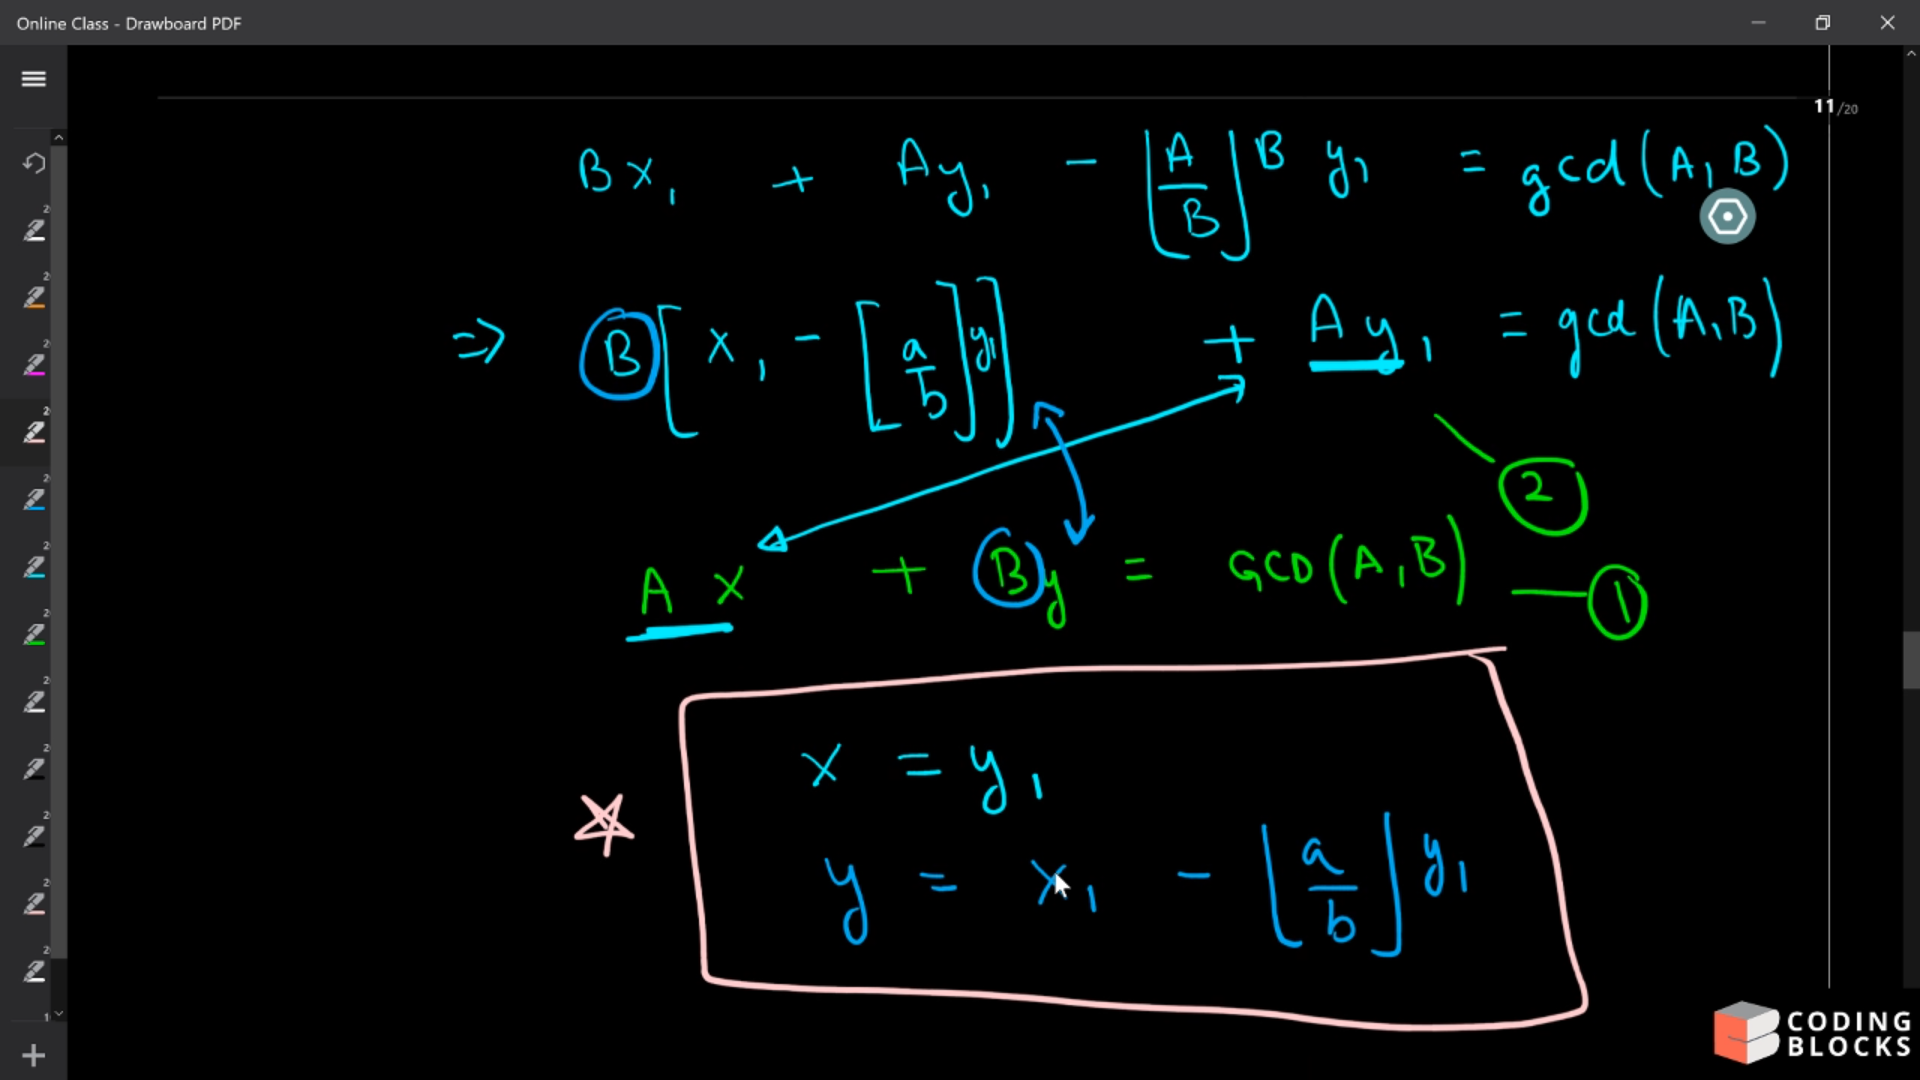 Online Class - Drawboard PDF
11/20
Bx₁ + Ay₁ - ⌊A/B⌋ B y₁ = gcd(A,B)
=> B[x₁ - [a/b]y₁] + Ay₁ = gcd(A,B)
2
Ax + By = GCD(A,B) — 1
x = y₁
y = x₁ - ⌊a/b⌋ y₁
CODING
BLOCKS